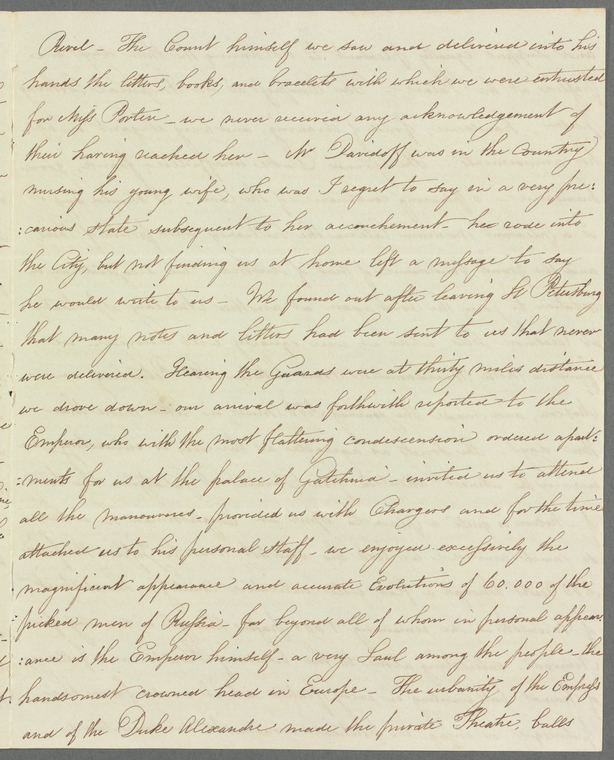 Revel - The Count himself we saw and delivered into his
hands the letters, books, and bracelets with which we were entrusted
for Miss Porter - we never received any acknowledgement of
their having reached her - Mr Davidoff was in the Country
nursing his young wife, who was I regret to say in a very pre:
:carious state subsequent to her accouchement - he rode into
the City, but not finding us at home left a message to say
he would write to us - We found out after leaving St Petersburg
that many notes and letters had been sent to us that never
were delivered. Hearing the Guards were at thirty miles distance
we drove down - our arrival was forthwith reported to the
Emperor, who with the most flattering condescension ordered apart:
:ments for us at the palace of Gatchina - invited us to attend
all the manouvres - provided us with Chargers and for the time
attached us to his personal staff - we enjoyed excessively the
magnificent appearance and accurate Evolutions of 60.000 of the
picked men of Russia - far beyond all of whom in personal appear:
:ance is the Emperor himself - a very Saul among the people - the
handsomest crowned head in Europe - The urbanity of the Empress
and of the Duke Alexandre made the private Theatre, balls